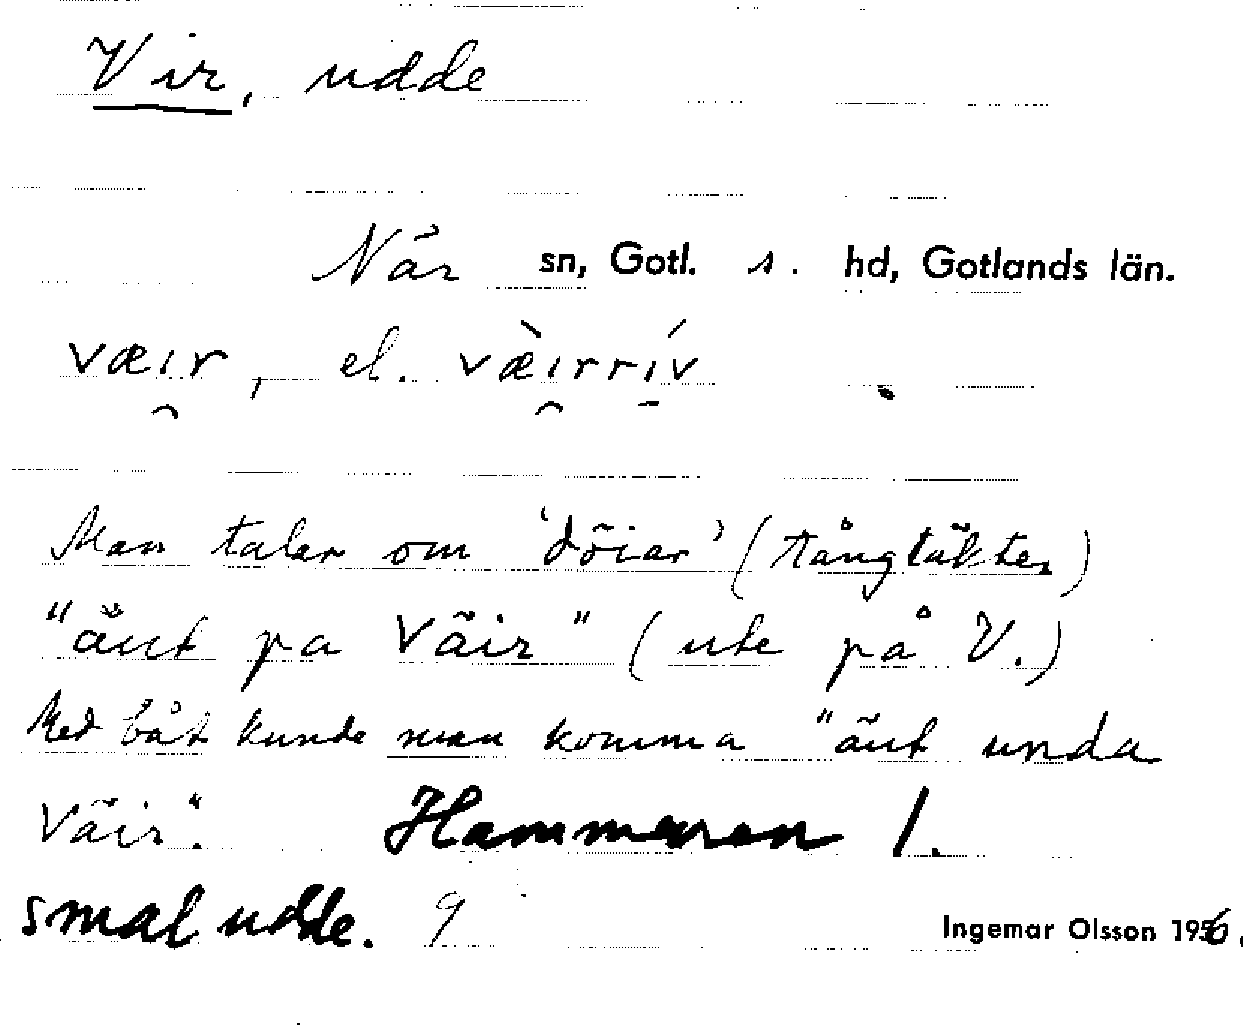 Vir, udde
När sn, Gotl. s. hd, Gotlands län.
væır, el. væ̀ırrív
Man talar om 'döiar' (tångtäkter)
"äut pa Väir" (ute på V.)
Med båt kunde man komma "äut unda
Väir".  Hammaren 1.
smal udde. 9
Ingemar Olsson 1956.